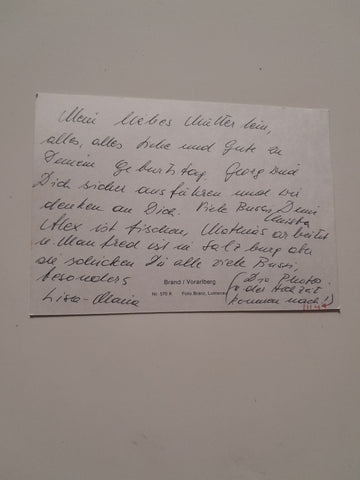 Mein liebes Mütterlein,
alles, alles Liebe und Gute zu
Deinem Geburtstag. Georg wird
Dich sicher ausführen und wir
denken an Dich. Viele Bussi, Deine
Alex ist fischen, Mathias arbeitet
u. Manfred ist in Salzburg aber
sie schicken Dir alle viele Bussi,
besonders
Lisa-Maria
(Die Photos
v. der Hochzeit
kommen nach!)
Brand / Vorarlberg
Nr. 570 R Foto Branz, Lustenau